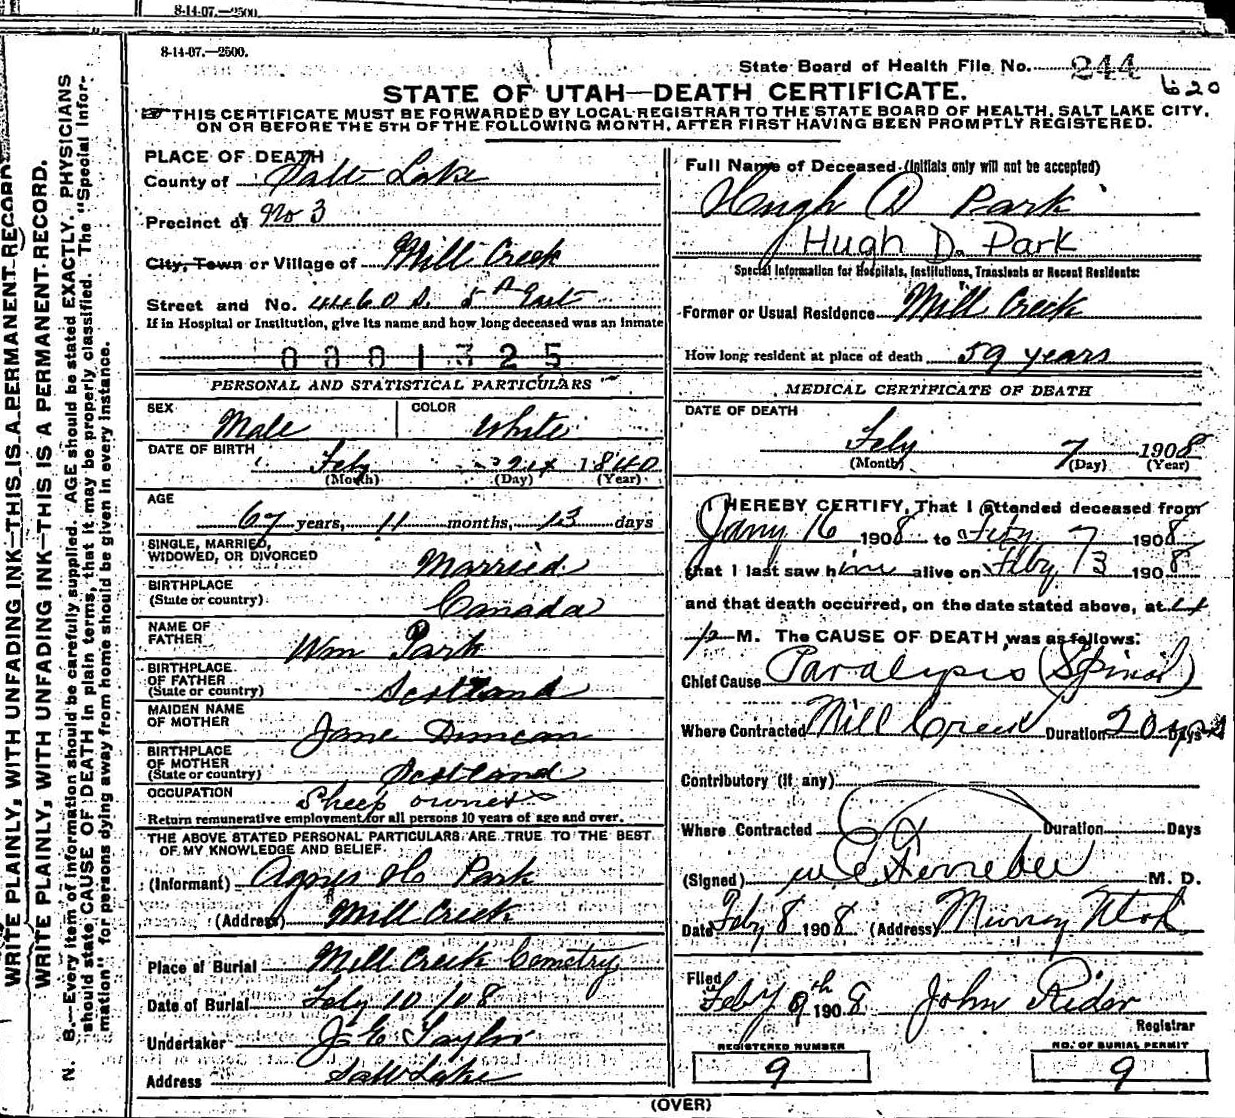 8-14-07.—2500.
8-14-07.—2500.
State Board of Health File No. 244
620
STATE OF UTAH—DEATH CERTIFICATE.
☞ THIS CERTIFICATE MUST BE FORWARDED BY LOCAL REGISTRAR TO THE STATE BOARD OF HEALTH, SALT LAKE CITY,
ON OR BEFORE THE 5TH OF THE FOLLOWING MONTH, AFTER FIRST HAVING BEEN PROMPTLY REGISTERED.
WRITE PLAINLY, WITH UNFADING INK—THIS IS A PERMANENT RECORD
WRITE PLAINLY, WITH UNFADING INK—THIS IS A PERMANENT RECORD.
N. B.—Every item of information should be carefully supplied. AGE should be stated EXACTLY. PHYSICIANS
should state CAUSE OF DEATH in plain terms, that it may be properly classified. The "Special Infor-
mation" for persons dying away from home should be given in every instance.
PLACE OF DEATH
County of Salt Lake
Precinct of No 3
City, Town or Village of Mill Creek
Street and No. 4460 S. 5th East
If in Hospital or Institution, give its name and how long deceased was an inmate
0001325
PERSONAL AND STATISTICAL PARTICULARS
SEX Male
COLOR White
DATE OF BIRTH Feby 21 1840
(Month) (Day) (Year)
AGE
67 years, 11 months, 13 days
SINGLE, MARRIED,
WIDOWED, OR DIVORCED Married
BIRTHPLACE
(State or country) Canada
NAME OF
FATHER Wm Park
BIRTHPLACE
OF FATHER
(State or country) Scotland
MAIDEN NAME
OF MOTHER Jane Duncan
BIRTHPLACE
OF MOTHER
(State or country) Scotland
OCCUPATION Sheep owner
Return remunerative employment for all persons 10 years of age and over.
THE ABOVE STATED PERSONAL PARTICULARS ARE TRUE TO THE BEST
OF MY KNOWLEDGE AND BELIEF.
(Informant) Agnes H Park
(Address) Mill Creek
Place of Burial Mill Creek Cemetry
Date of Burial Feby 10/08
Undertaker J E Taylor
Address Salt Lake
Full Name of Deceased (Initials only will not be accepted)
Hugh D Park
Hugh D. Park
Special Information for Hospitals, Institutions, Transients or Recent Residents:
Former or Usual Residence Mill Creek
How long resident at place of death 59 years
MEDICAL CERTIFICATE OF DEATH
DATE OF DEATH
Feby 7 1908
(Month) (Day) (Year)
I HEREBY CERTIFY, That I attended deceased from
Jany 16 1908 to Feby 7 1908
that I last saw him alive on Feby 3 1908
and that death occurred, on the date stated above, at 4
p M. The CAUSE OF DEATH was as follows:
Chief Cause Paralysis (Spinal)
Where Contracted Mill Creek Duration 20 Days
Contributory (if any)
Where Contracted Duration Days
(Signed) M. D.
Date Feby 8 1908 (Address) Murray Utah
Filed
Feby 9th 1908 John Rider
Registrar
REGISTERED NUMBER
9
NO. OF BURIAL PERMIT
9
(OVER)